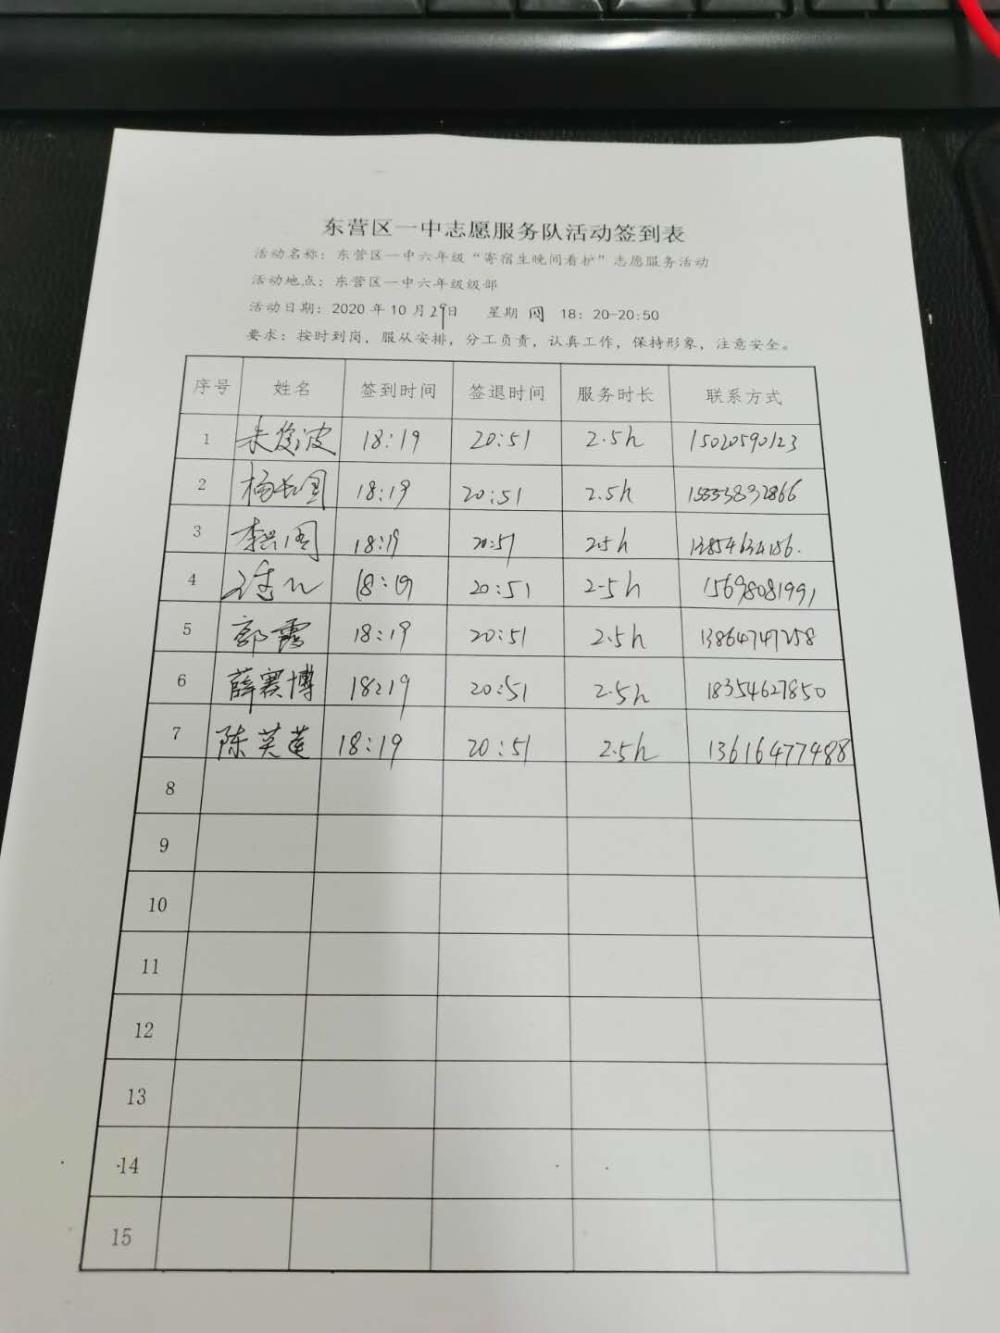 东营区一中志愿服务队活动签到表
活动名称：东营区一中六年级“寄宿生晚间看护”志愿服务活动
活动地点：东营区一中六年级级部
活动日期：2020年10月29日 星期四 18：20-20:50
要求：按时到岗，服从安排，分工负责，认真工作，保持形象，注意安全。
序号 姓名 签到时间 签退时间 服务时长 联系方式
1 朱俊波 18:19 20:51 2.5h 15020590123
2 杨长国 18:19 20:51 2.5h
3 18:19 20:51 2.5h
4 18:19 20:51 2.5h 15698081991
5 郭霞 18:19 20:51 2.5h 13864747258
6 薛赛博 18:19 20:51 2.5h 18354627850
7 陈英莲 18:19 20:51 2.5h 13616477488
8
9
10
11
12
13
14
15